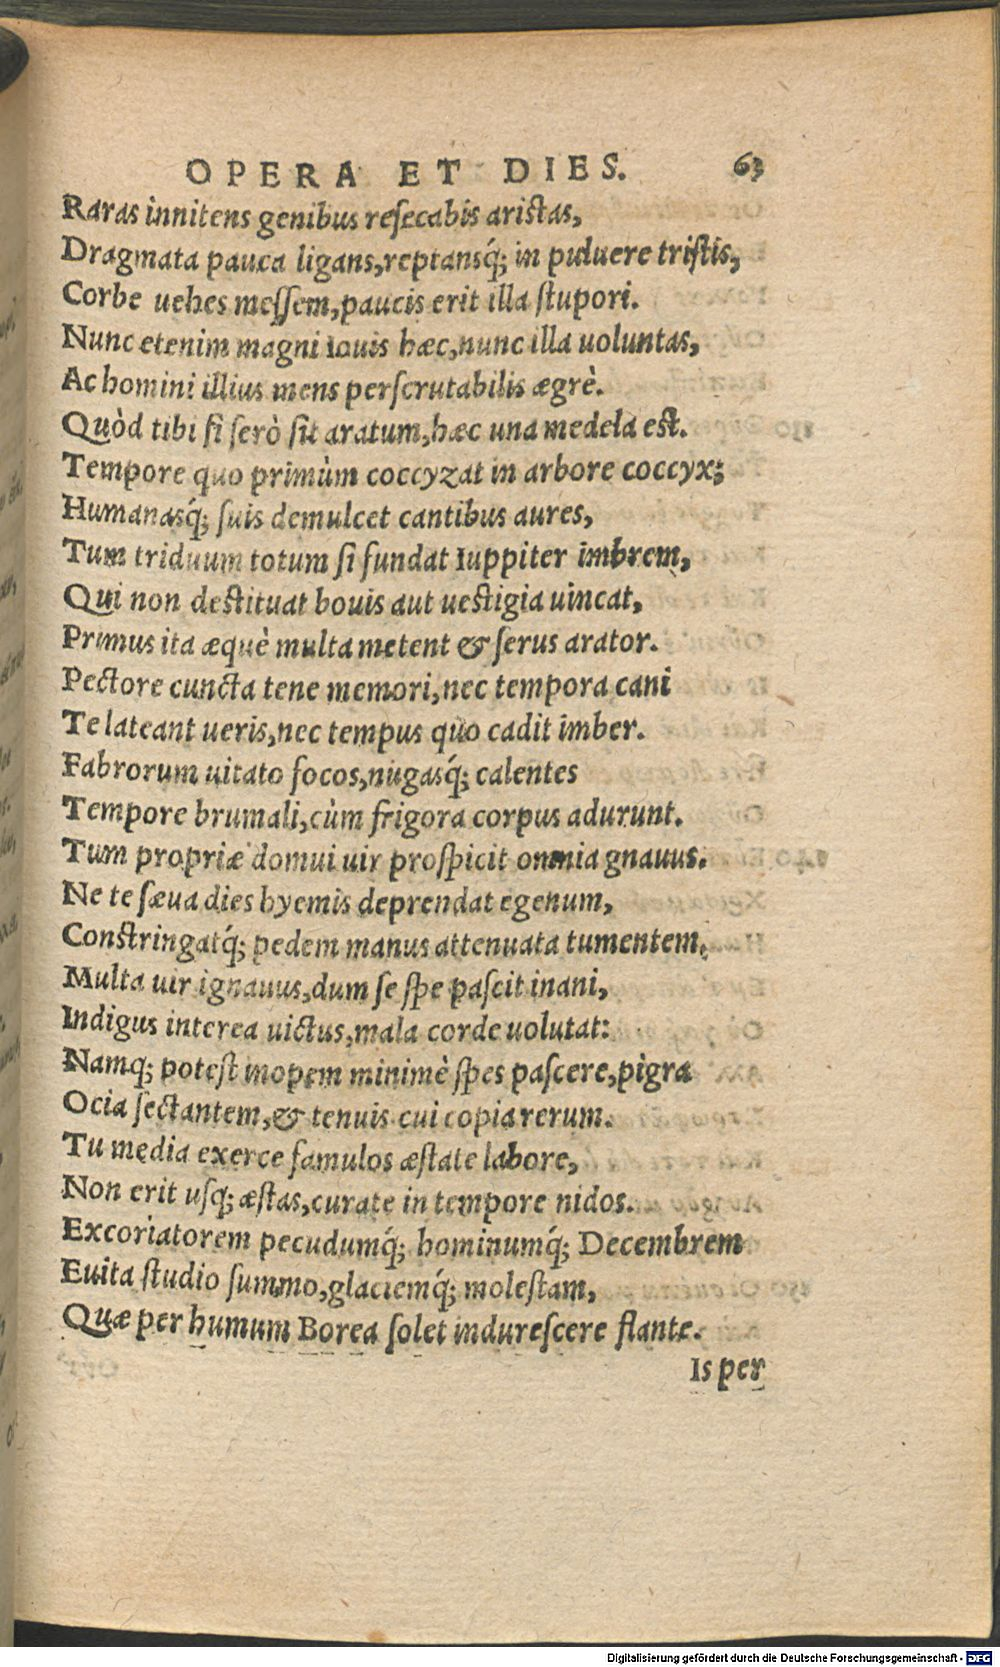 OPERA ET DIES. 63
Raras innitens genibus resecabis aristas,
Dragmata pauca ligans, reptansq́; in puluere tristis,
Corbe uehes messem, paucis erit illa stupori.
Nunc etenim magni Iouis hæc, nunc illa uoluntas,
Ac homini illius mens perscrutabilis ægrè.
Quòd tibi si serò sit aratum, hæc una medela est.
Tempore quo primùm coccyzat in arbore coccyx;
Humanasq́; suis demulcet cantibus aures,
Tum triduum totum si fundat Iuppiter imbrem,
Qui non destituat bouis aut uestigia uincat,
Primus ita æquè multa metent & serus arator.
Pectore cuncta tene memori, nec tempora cani
Te lateant ueris, nec tempus quo cadit imber.
Fabrorum uitato focos, nugasq́; calentes
Tempore brumali, cùm frigora corpus adurunt.
Tum propriæ domui uir prospicit omnia gnauus.
Ne te sæua dies hyemis deprendat egenum,
Constringatq́; pedem manus attenuata tumentem,
Multa uir ignauus, dum se spe pascit inani,
Indigus interea uictus, mala corde uolutat:
Namq; potest inopem minimè spes pascere, pigra
Ocia sectantem, & tenuis cui copia rerum.
Tu media exerce famulos æstate labore,
Non erit usq; æstas, curate in tempore nidos.
Excoriatorem pecudumq́; hominumq́; Decembrem
Euita studio summo, glaciemq́; molestam,
Quæ per humum Borea solet indurescere flante.
Is per
Digitalisierung gefördert durch die Deutsche Forschungsgemeinschaft - DFG